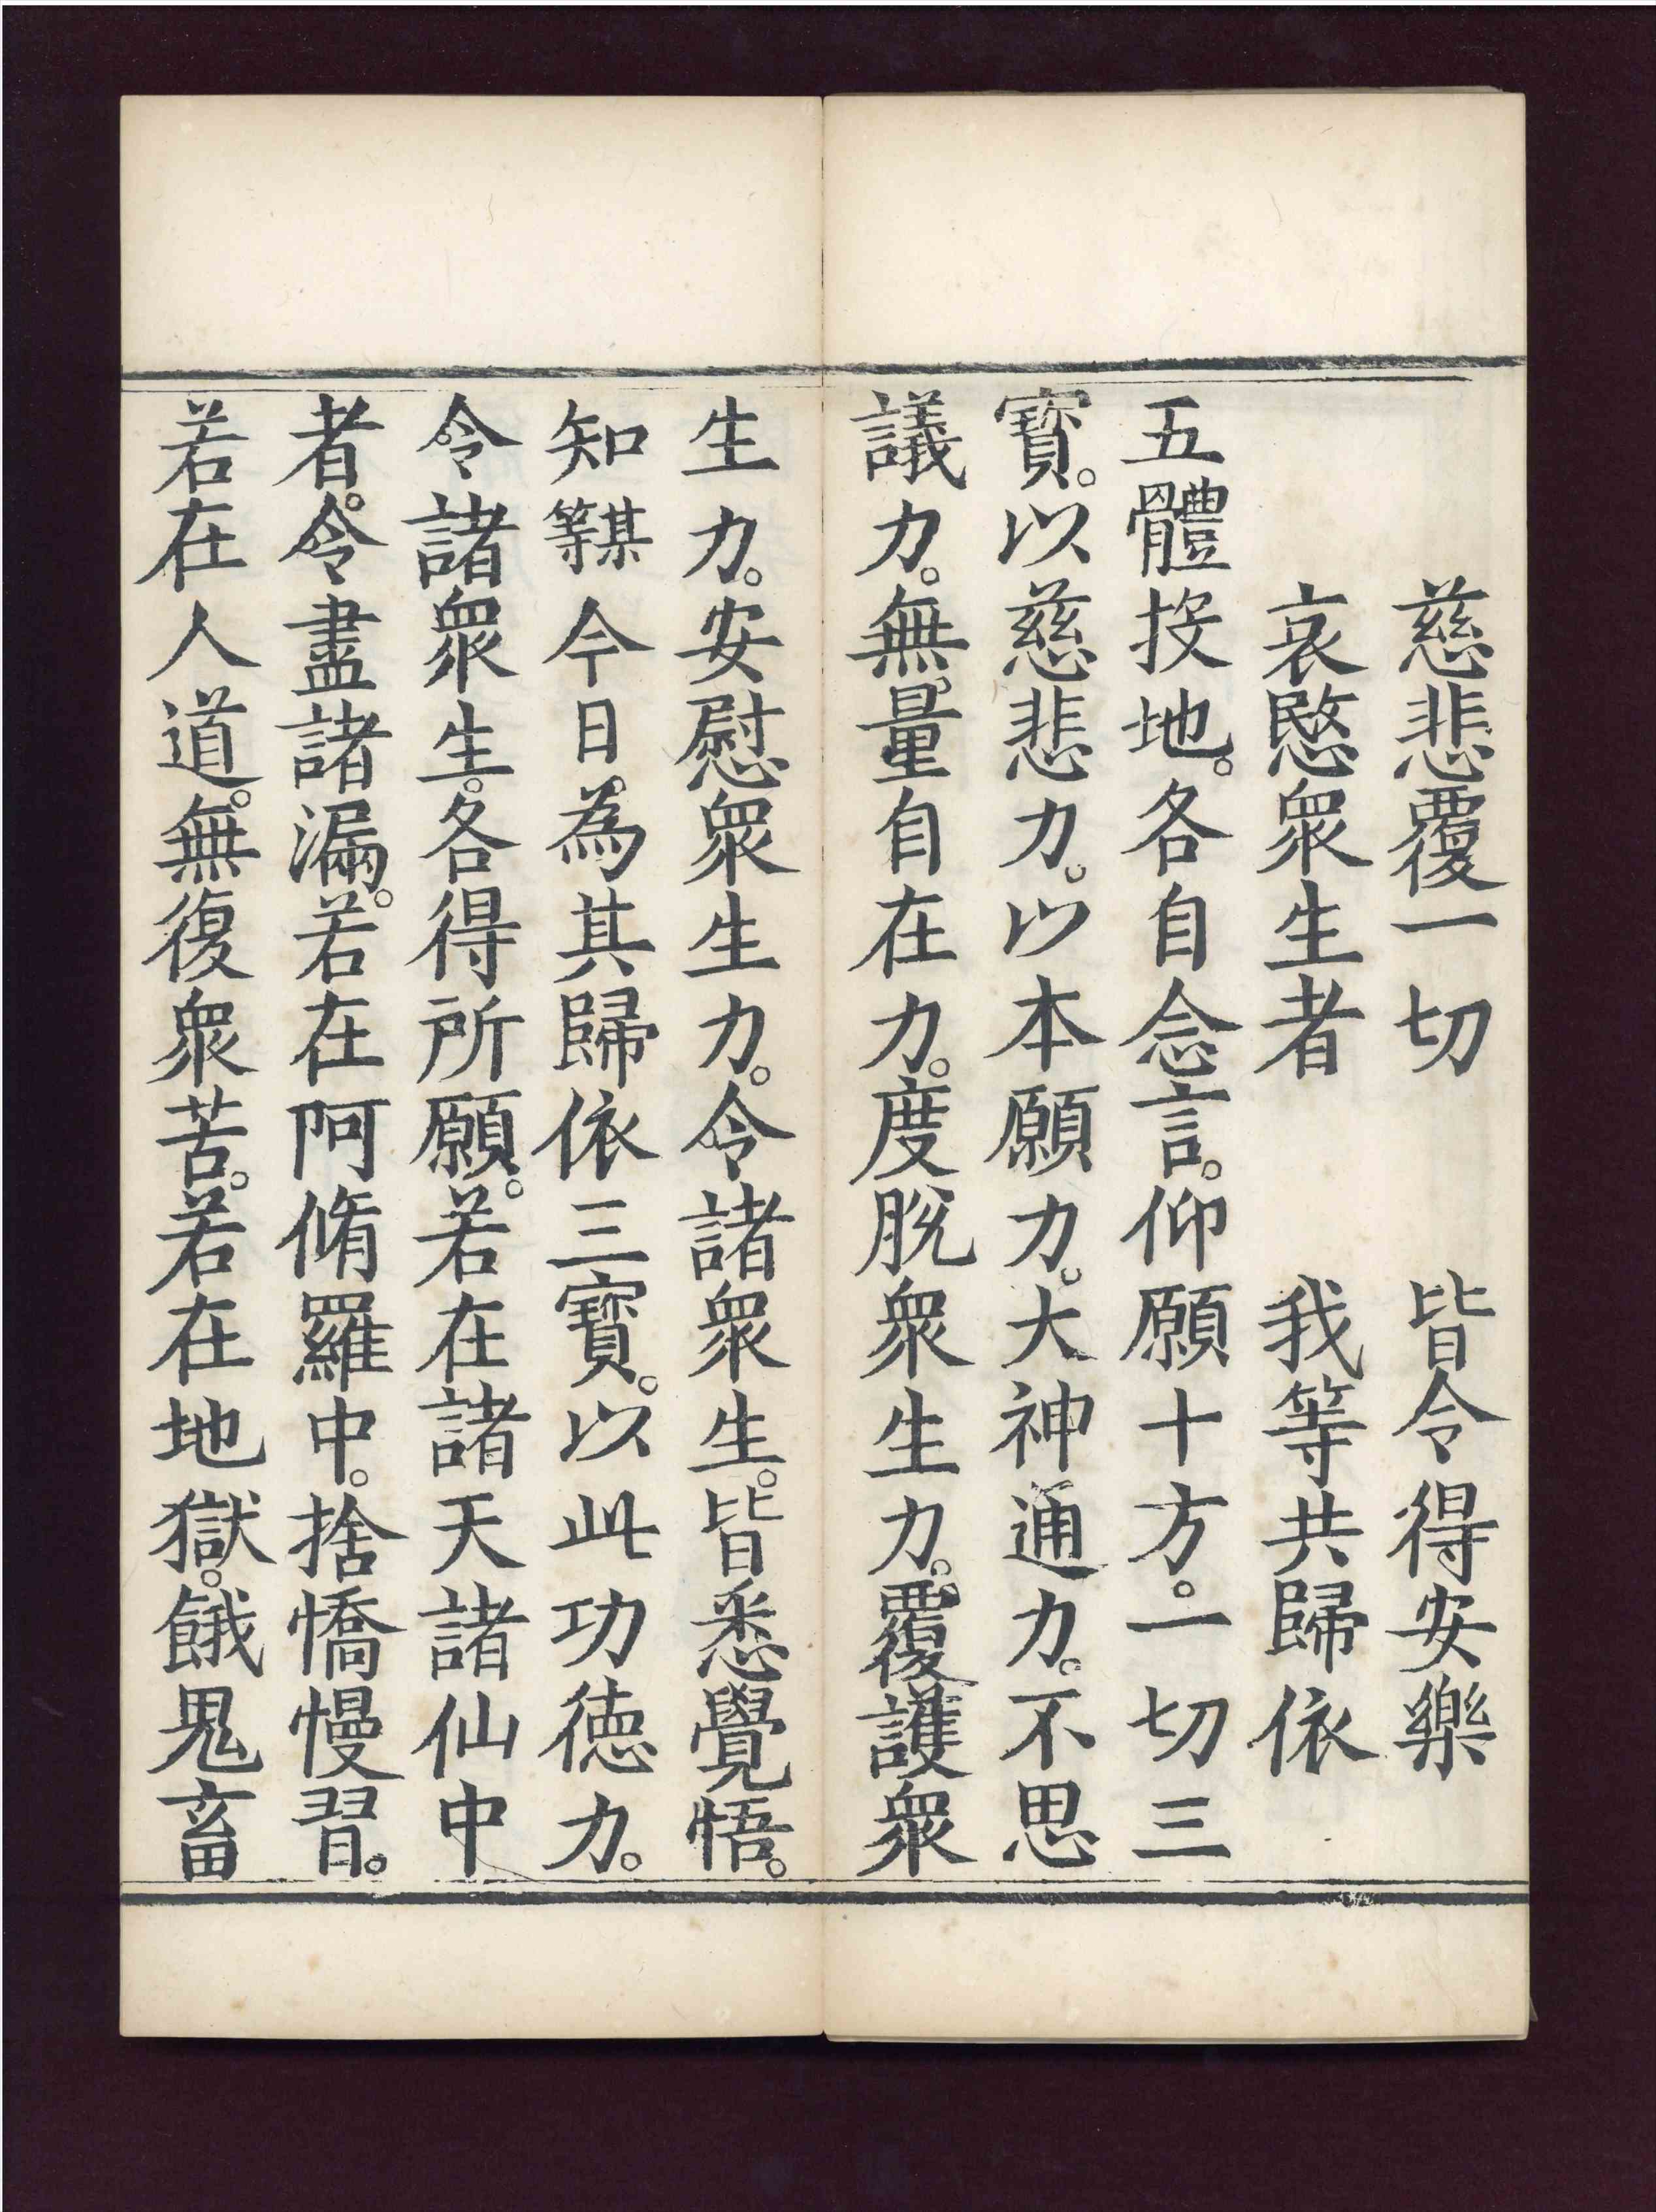 慈悲覆一切　皆令得安樂
哀愍衆生者　我等共歸依
五體投地。各自念言。仰願十方。一切三
寶。以慈悲力。以本願力。大神通力。不思
議力。無量自在力。度脫衆生力。覆護衆
生力。安慰衆生力。令諸衆生。皆悉覺悟。
知某等今日。為其歸依三寶。以此功德力。
令諸衆生。各得所願。若在諸天諸仙中
者。令盡諸漏。若在阿脩羅中。捨憍慢習。
若在人道。無復衆苦。若在地獄。餓鬼畜